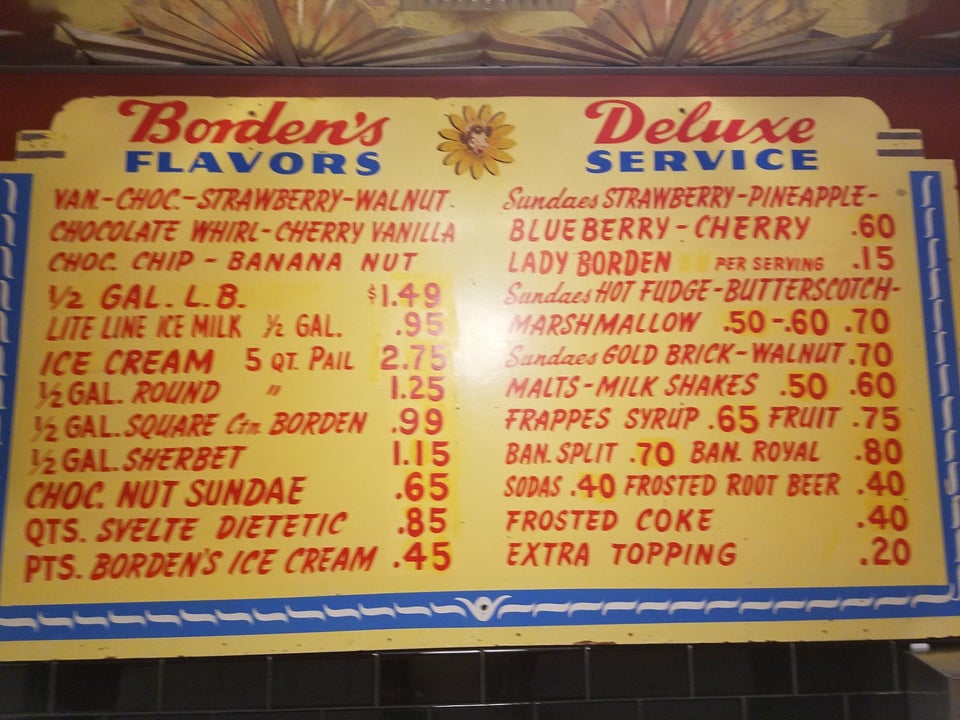 Borden's
FLAVORS
VAN.-CHOC.-STRAWBERRY-WALNUT.
CHOCOLATE WHIRL-CHERRY VANILLA
CHOC. CHIP - BANANA NUT
1/2 GAL. L.B. $1.49
LITE LINE ICE MILK 1/2 GAL. .95
ICE CREAM 5 QT. PAIL 2.75
1/2 GAL. ROUND " 1.25
1/2 GAL. SQUARE Ctn. BORDEN .99
1/2 GAL. SHERBET 1.15
CHOC. NUT SUNDAE .65
QTS. SVELTE DIETETIC .85
PTS. BORDEN'S ICE CREAM .45
Deluxe
SERVICE
Sundaes STRAWBERRY-PINEAPPLE-
BLUEBERRY-CHERRY .60
LADY BORDEN PER SERVING .15
Sundaes HOT FUDGE-BUTTERSCOTCH-
MARSHMALLOW .50-.60 .70
Sundaes GOLD BRICK-WALNUT .70
MALTS-MILK SHAKES .50 .60
FRAPPES SYRUP .65 FRUIT .75
BAN. SPLIT .70 BAN. ROYAL .80
SODAS .40 FROSTED ROOT BEER .40
FROSTED COKE .40
EXTRA TOPPING .20